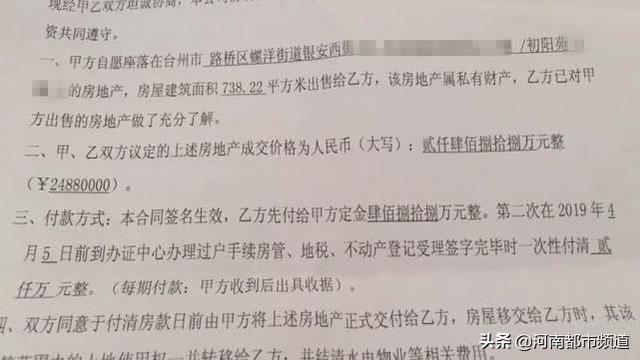 现经甲乙双方坦诚协商,
资共同遵守。
一、甲方自愿座落在台州市 路桥区螺洋街道银安西街 /初阳苑
的房地产,房屋建筑面积 738.22 平方米出售给乙方,该房地产属私有财产,乙方已对甲
方出售的房地产做了充分了解。
二、甲、乙双方议定的上述房地产成交价格为人民币(大写):贰仟肆佰捌拾捌万元整
(¥24880000)。
三、付款方式:本合同签名生效,乙方先付给甲方定金肆佰捌拾捌万元整。第二次在 2019 年 4
月 5 日前到办证中心办理过户手续房管、地税、不动产登记受理签字完毕时一次性付清 贰
仟万 元整。(每期付款:甲方收到后出具收据)。
四、双方同意于付清房款日前由甲方将上述房地产正式交付给乙方,房屋移交给乙方时,其该
范围内的土地使用权一并转移给乙方,并结清水电物业等相关费用。
头条 @河南都市频道